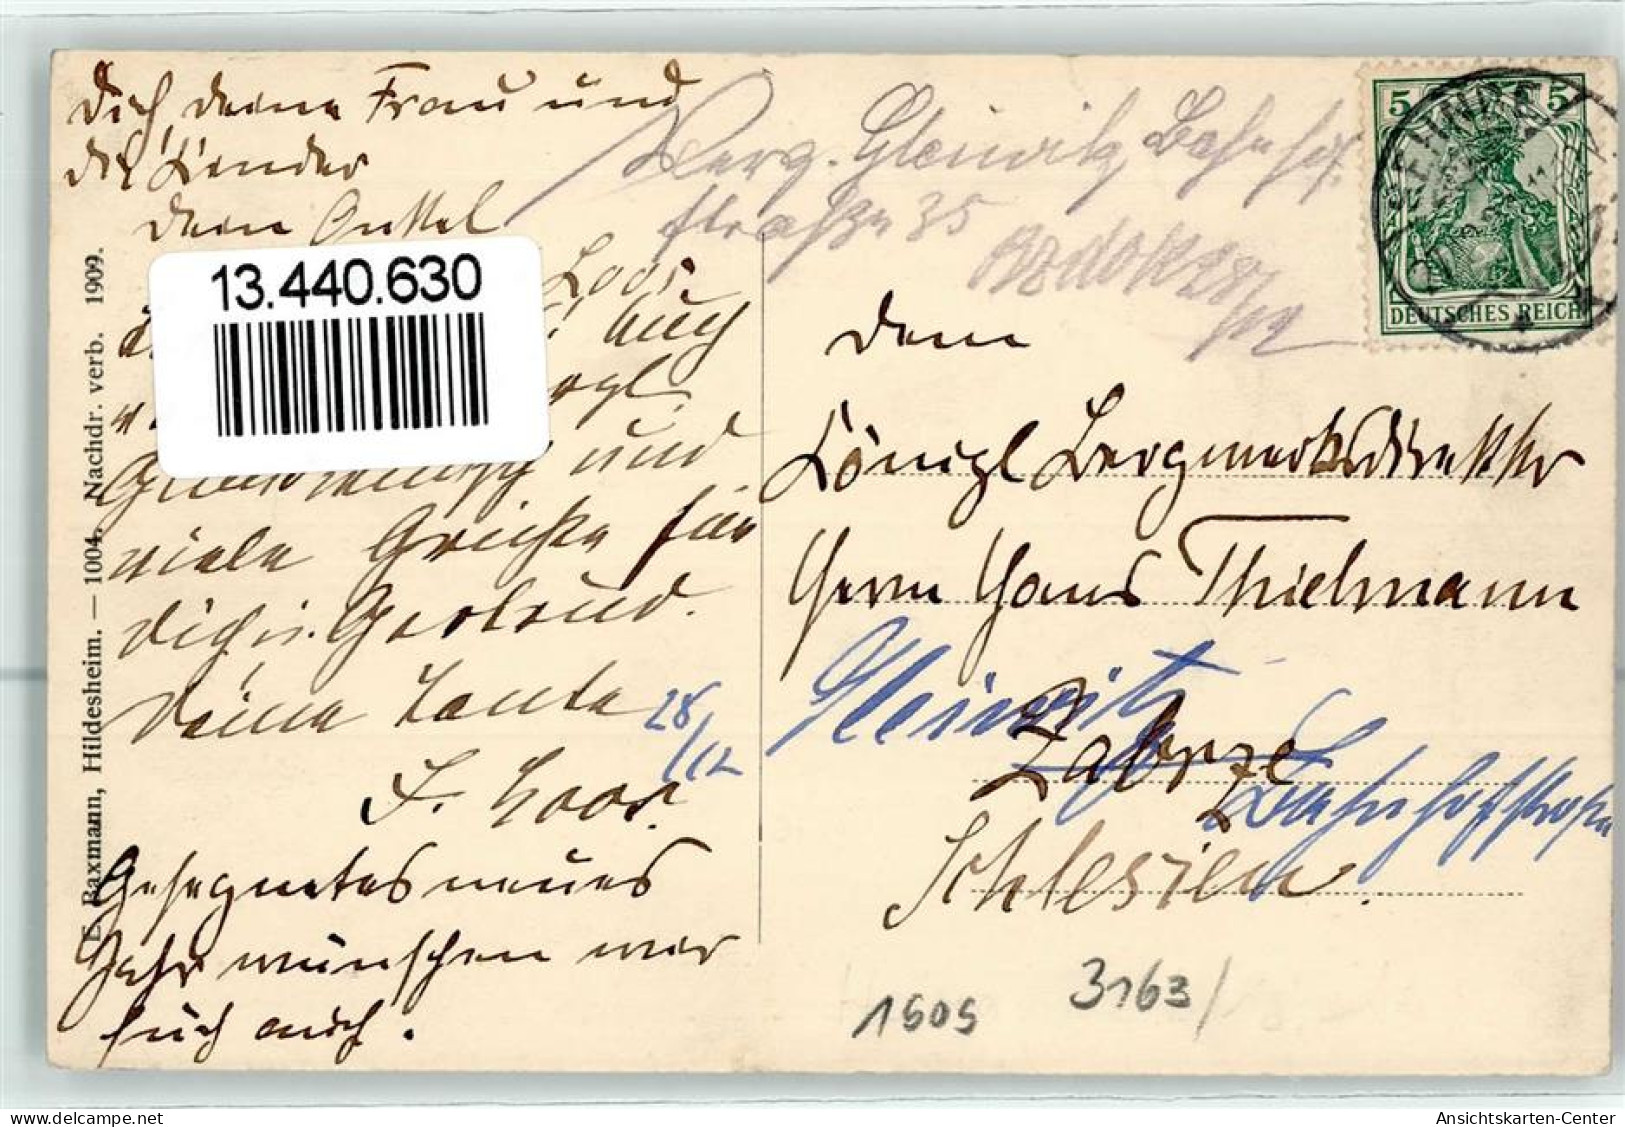 Dich deine Frau und
die Kinder
dein Onkel
Loos.
13.440.630
auch
und
viele Grüße für
dich u. Gertrud.
Deine Tante
F. Loos.
Gesegnetes neues
Jahr wünschen wir
Euch auch.
28/12
E. Baxmann, Hildesheim. — 1004. Nachdr. verb. 1909.
Gleiwitz Bahnhof
straße 35
28/12
5 5
DEUTSCHES REICH
Dem
Königl Bergwerksdirektor
Herrn Hans Thielmann
Gleiwitz
Zabrze
Bahnhofstraße
Schlesien.
1505
3163/
oldthing.de
Ansichtskarten-Center